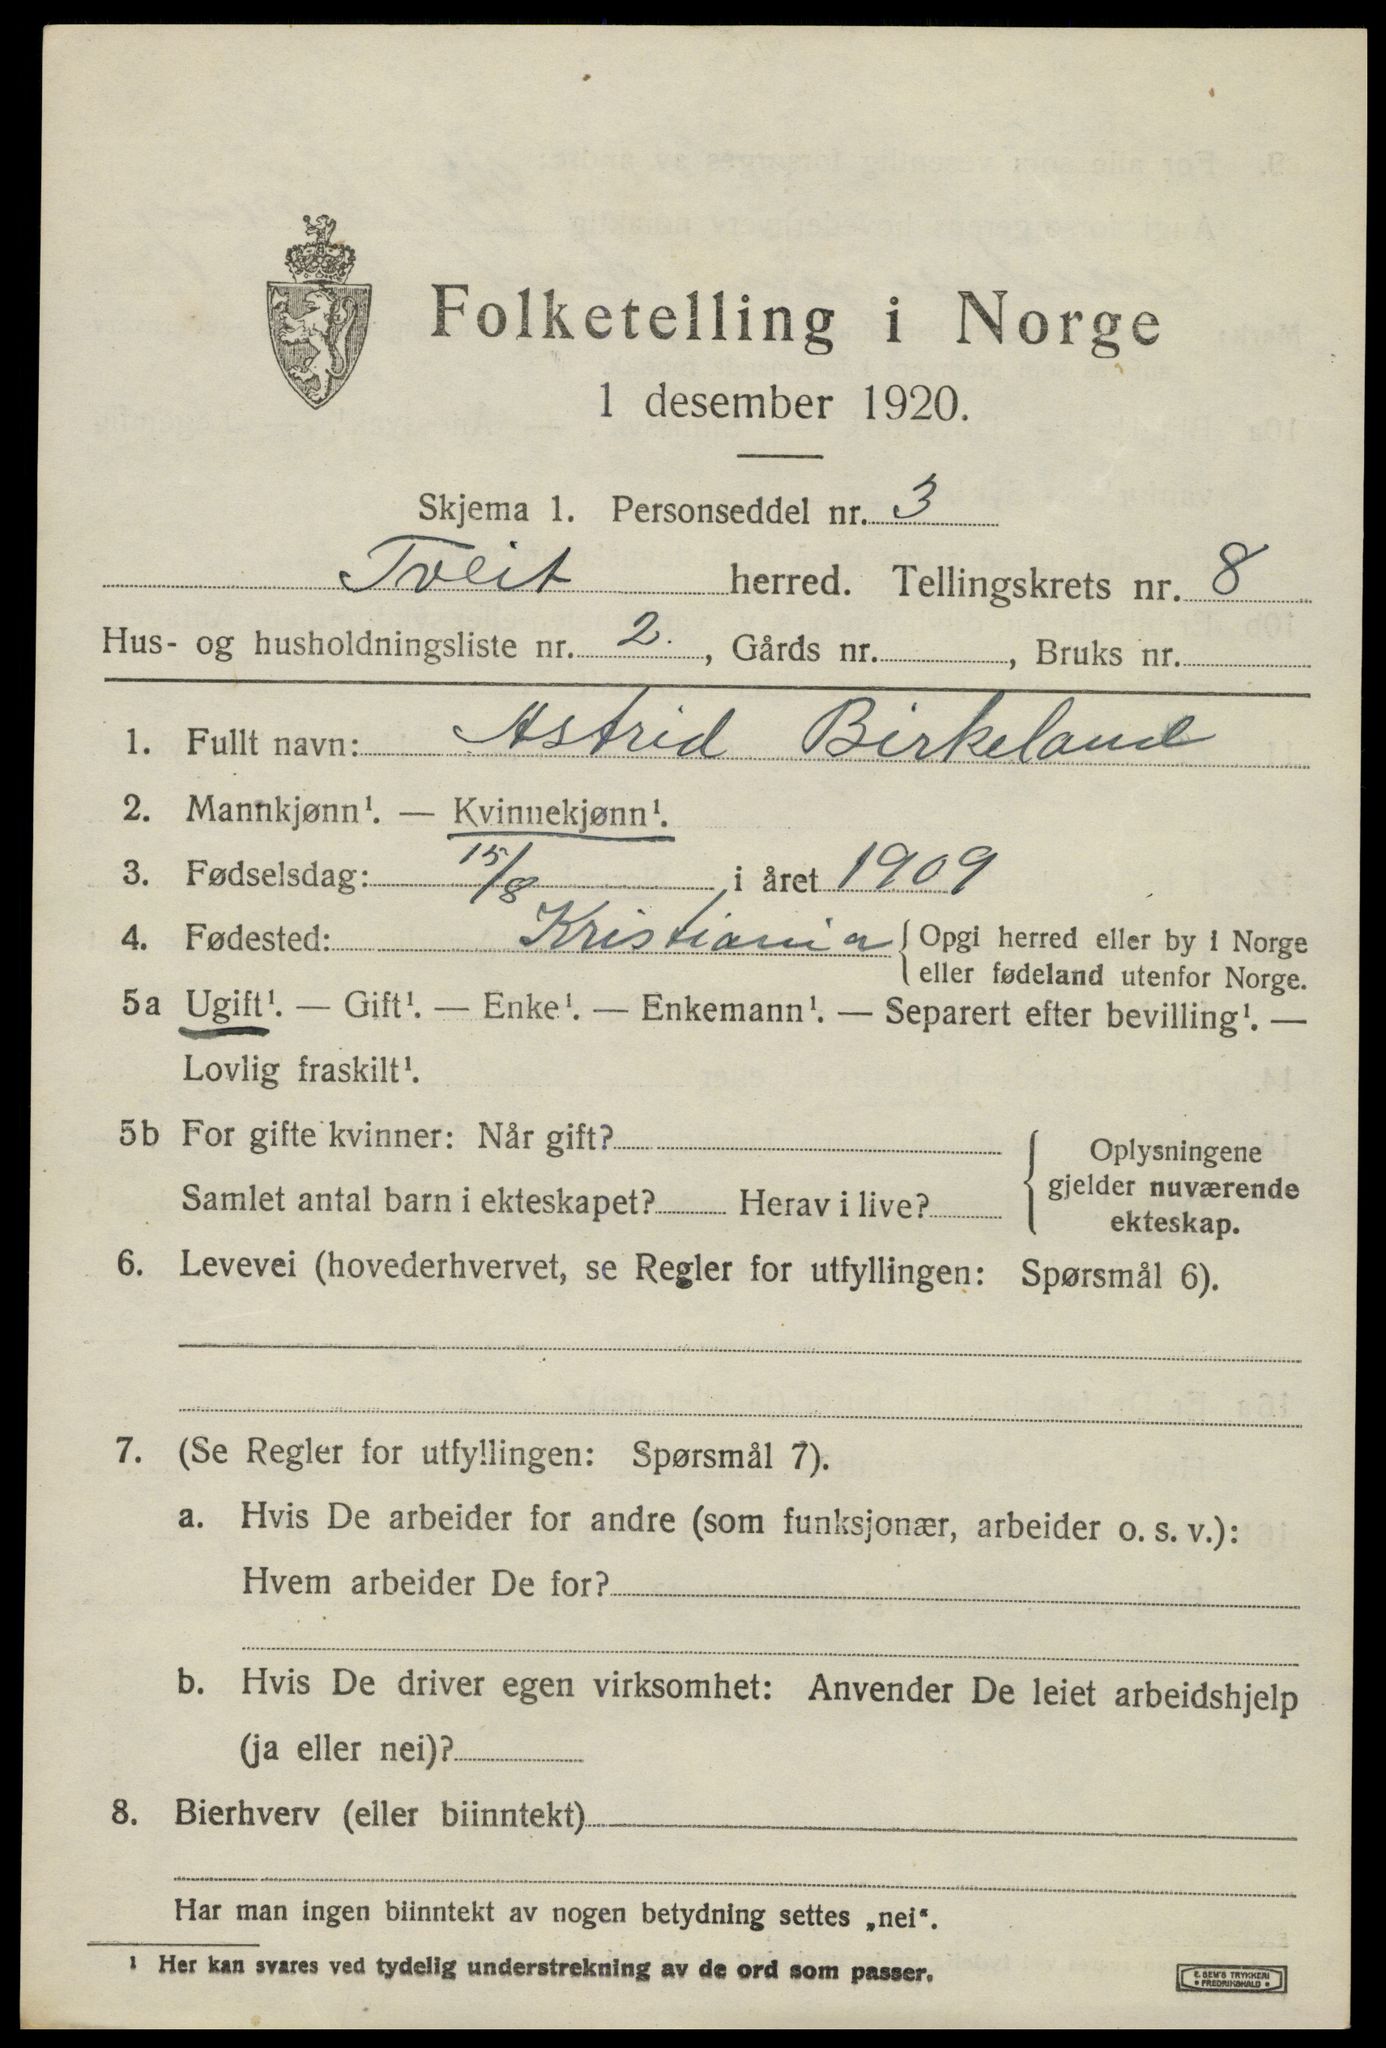 Folketelling i Norge
1 desember 1920.
Skjema 1. Personseddel nr. 3
Tveit herred. Tellingskrets nr. 8
Hus- og husholdningsliste nr. 2., Gårds nr. , Bruks nr.
1. Fullt navn: Astrid Birkeland
2. Mannkjønn¹. — Kvinnekjønn¹.
3. Fødselsdag: 15/8 i året 1909
4. Fødested: Kristiania { Opgi herred eller by i Norge
eller fødeland utenfor Norge.
5a Ugift¹. — Gift¹. — Enke¹. — Enkemann¹. — Separert efter bevilling¹. —
Lovlig fraskilt¹.
5b For gifte kvinner: Når gift?
Samlet antal barn i ekteskapet? Herav i live?
Oplysningene
gjelder nuværende
ekteskap.
6. Levevei (hovederhvervet, se Regler for utfyllingen: Spørsmål 6).
7. (Se Regler for utfyllingen: Spørsmål 7).
a. Hvis De arbeider for andre (som funksjonær, arbeider o. s. v.):
Hvem arbeider De for?
b. Hvis De driver egen virksomhet: Anvender De leiet arbeidshjelp
(ja eller nei)?
8. Bierhverv (eller biinntekt)
Har man ingen biinntekt av nogen betydning settes „nei“.
¹ Her kan svares ved tydelig understrekning av de ord som passer.
E. SEM'S TRYKKERI
• FREDRIKSHALD •